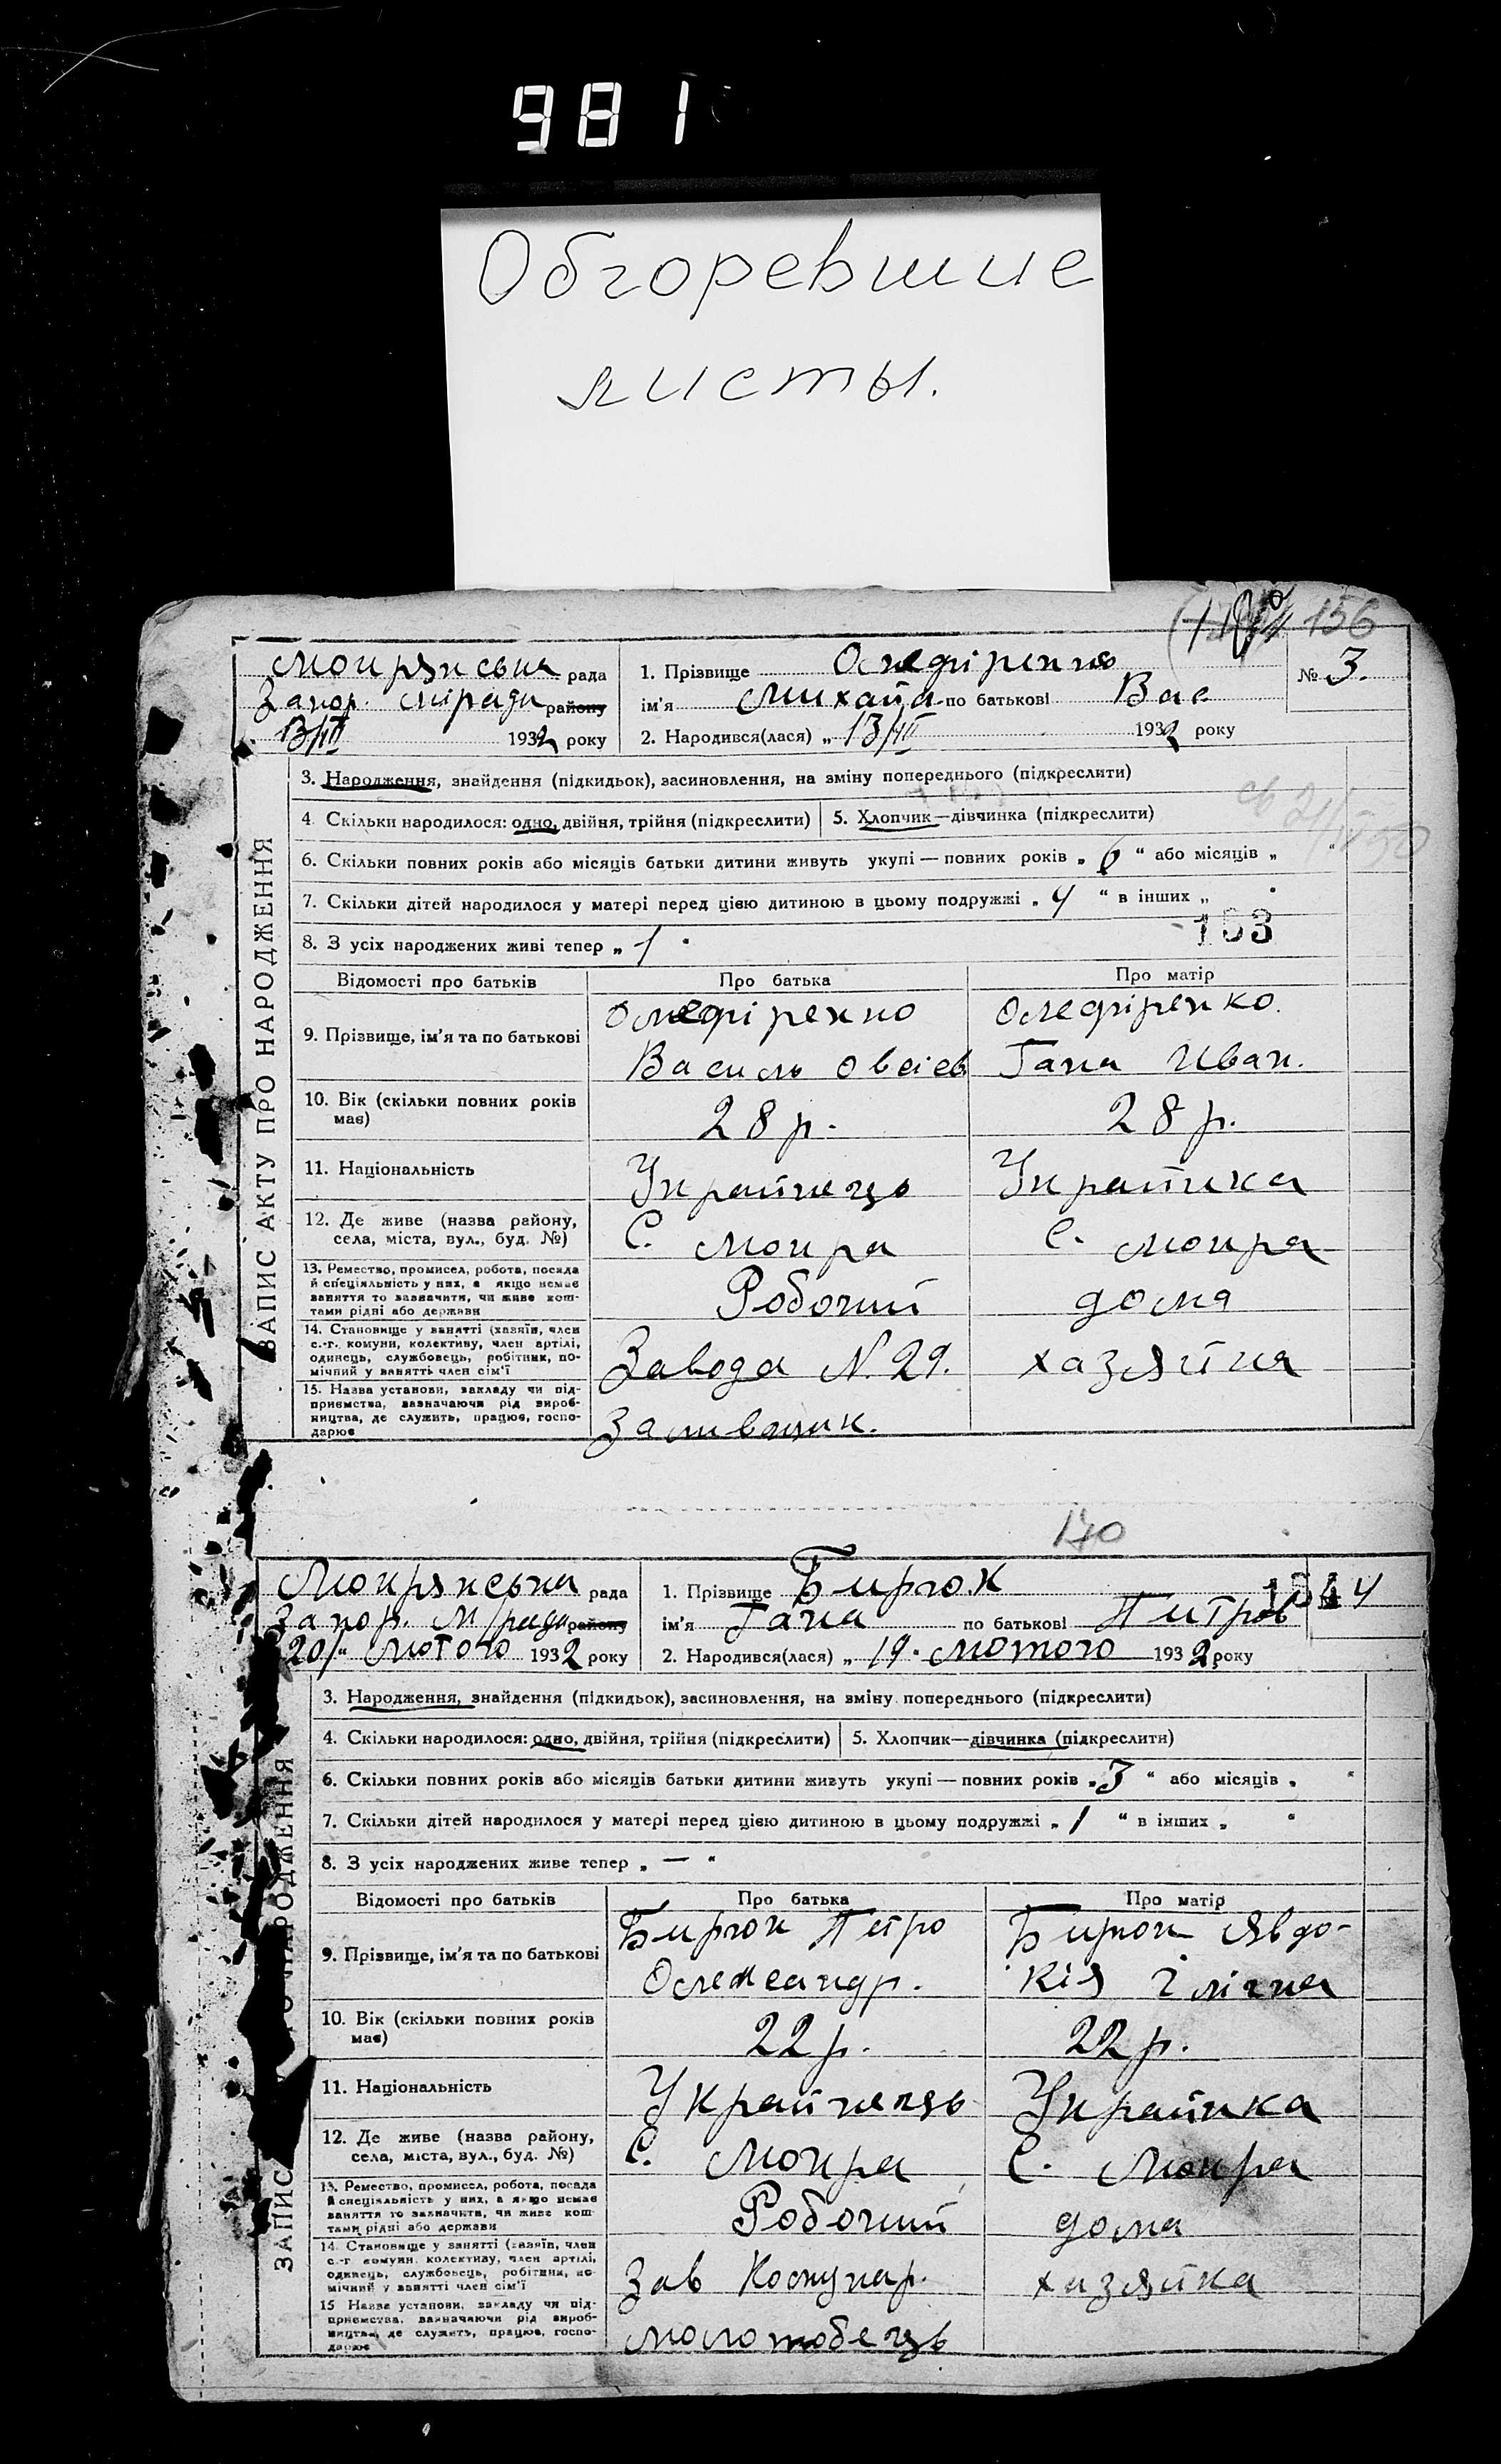 981
Обгоревшие
листы.
156
Мокрянська рада
Запор. міради району
13/III 1932 року
1. Прізвище Олефіренко
ім'я Михайл по батькові Вас
2. Народився(лася) „ 13/III 1932 року
№ 3.
ЗАПИС АКТУ ПРО НАРОДЖЕННЯ
3. Народження, знайдення (підкидьок), засиновлення, на зміну попереднього (підкреслити)
4. Скільки народилося: одно, двійня, трійня (підкреслити) 5. Хлопчик—дівчинка (підкреслити)
6. Скільки повних років або місяців батьки дитини живуть укупі — повних років „ 6 “ або місяців „
7. Скільки дітей народилося у матері перед цією дитиною в цьому подружжі „ 4 “ в інших „
8. З усіх народжених живі тепер „ 1
Відомості про батьків Про батька Про матір
9. Прізвище, ім'я та по батькові
Олефіренко Олефіренко.
Василь Овсієв Гана Иван.
10. Вік (скільки повних років має) 28 р. 28 р.
11. Національність Українець Українка
12. Де живе (назва району, села, міста, вул., буд. №) С. Мокра С. Мокра
13. Ремество, промисел, робота, посада й спеціяльність у них, а якщо немає заняття то зазначити, чи живе коштами рідні або держави Робочий дома
14. Становище у занятті (хазяїн, член с.-г. комуни, колективу, член артілі, одинець, службовець, робітник, помічний у занятть член сім'ї Завода N. 29. хазяйка
15. Назва установи, закладу чи підприємства, зазначаючи рід виробництва, де служить, працює, господарює Заливщик.
170
Мокрянська рада
Запор. М/рада району
20/“ лютого 1932 року
1. Прізвище Бирюк
ім'я Гана по батькові Питров
2. Народився(лася) „ 19 “ лютого 1932 року
4
ЗАПИС
3. Народження, знайдення (підкидьок), засиновлення, на зміну попереднього (підкреслити)
4. Скільки народилося: одно, двійня, трійня (підкреслити) 5. Хлопчик—дівчинка (підкреслити)
6. Скільки повних років або місяців батьки дитини живуть укупі — повних років „ 3 “ або місяців „ “
7. Скільки дітей народилося у матері перед цією дитиною в цьому подружжі „ 1 “ в інших „ “
8. З усіх народжених живе тепер „ — “
Відомості про батьків Про батька Про матір
9. Прізвище, ім'я та по батькові
Бирюк Питро Бирюк Явдо-
Олександр. кія Ілічна
10. Вік (скільки повних років має) 22 р. 22 р.
11. Національність Українець Українка
12. Де живе (назва району, села, міста, вул., буд. №) С. Мокра С. Мокра
13. Ремество, промисел, робота, посада й спеціяльність у них, а якщо немає заняття то зазначити, чи живе коштами рідні або держави Робочий дома
14. Становище у занятті (хазяїн, член с.-г. комуни, колективу, член артілі, одинець, службовець, робітник, помічний у занятті член сім'ї Зав Комунар. хазяйка
15 Назва установи, закладу чи підприємства, зазначаючи рід виробництва, де служить, працює, господарює молотобець